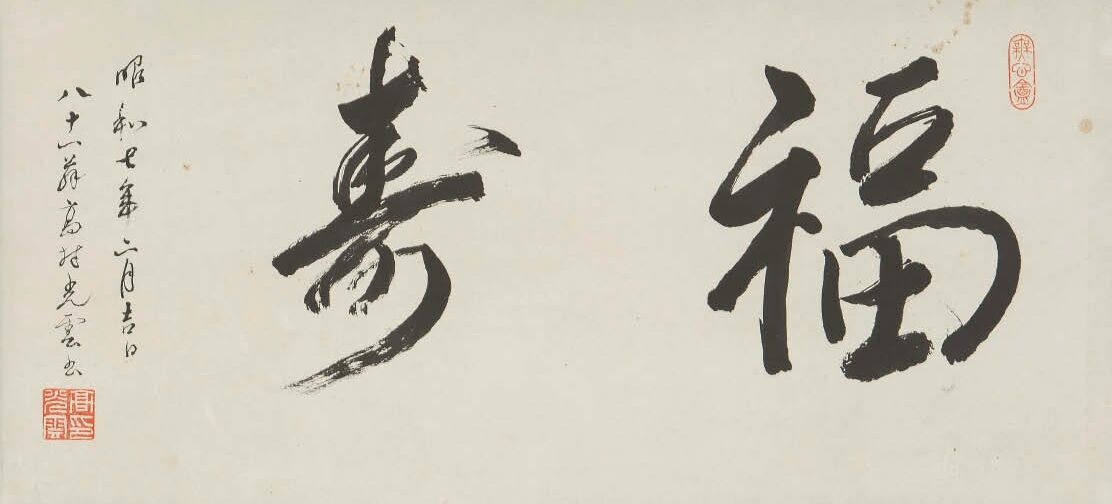 福寿
昭和七年六月吉日
八十一翁高村光雲書